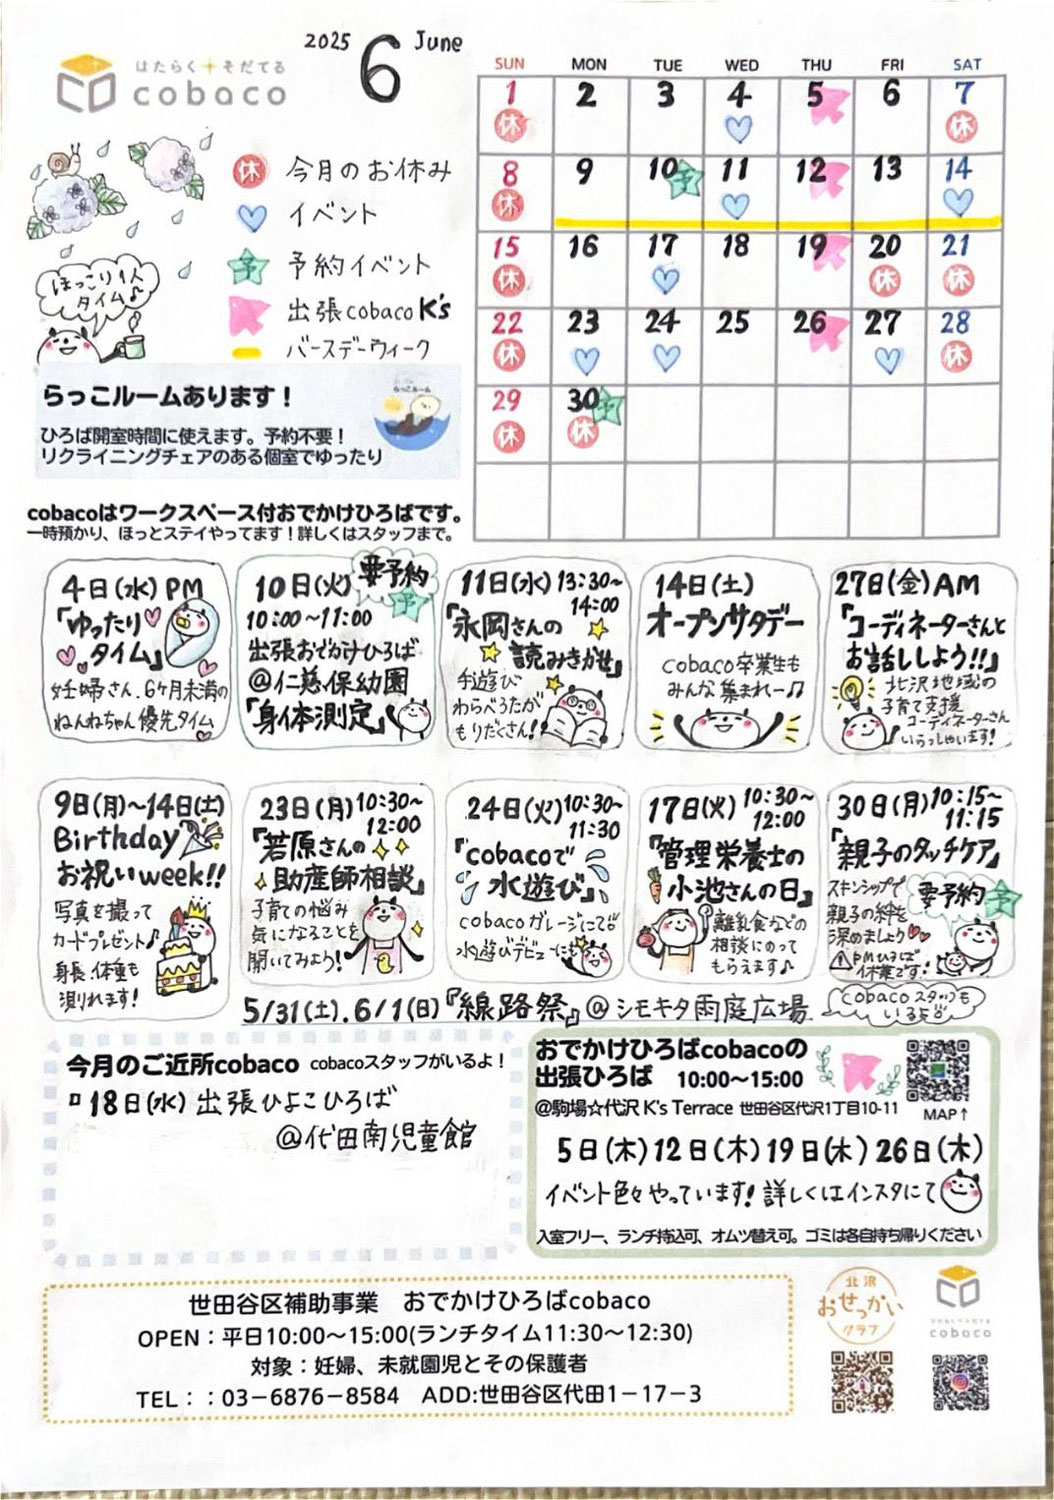 2025 6 June
はたらく+そだてる
cobaco
休 今月のお休み
イベント
予 予約イベント
出張cobaco K's
バースデーウィーク
ほっこり1人
タイム♪
らっこルームあります！
らっこルーム
ひろば開室時間に使えます。予約不要！
リクライニングチェアのある個室でゆったり
cobacoはワークスペース付おでかけひろばです。
一時預かり、ほっとステイやってます！詳しくはスタッフまで。
SUN MON TUE WED THU FRI SAT
1 2 3 4 5 6 7
休 休
8 9 10 予 11 12 13 14
休
15 16 17 18 19 20 21
休 休 休
22 23 24 25 26 27 28
休 休
29 30 予
休 休
4日(水) PM
「ゆったり
タイム」
妊婦さん、6ヶ月未満の
ねんねちゃん優先タイム
10日(火) 要予約
予
10:00〜11:00
出張おでかけひろば
@仁慈保幼園
「身体測定」
11日(水) 13:30〜
14:00
「永岡さんの
読みきかせ」
手遊び
わらべうたが
もりだくさん!
14日(土)
オープンサタデー
cobaco卒業生も
みんな集まれー♫
27日(金)AM
「コーディネーターさんと
お話ししよう!!」
北沢地域の
子育て支援
コーディネーターさん
いらっしゃいます!
9日(月)〜14日(土)
Birthday
お祝いweek!!
写真を撮って
カードプレゼント♪
身長、体重も
測れます!
23日(月) 10:30〜
12:00
「若原さんの
助産師相談」
子育ての悩み
気になることを
聞いてみよう!
24日(火) 10:30〜
11:30
「cobacoで
水遊び」
cobacoガレージにて
水遊びデビューにも
17日(火) 10:30〜
12:00
「管理栄養士の
小池さんの日」
離乳食などの
相談にのって
もらえます♪
30日(月) 10:15〜
11:15
「親子のタッチケア」
スキンシップで
親子の絆を
深めましょう
要予約 予
PMひろば
休業です!
5/31(土).6/1(日)『線路祭』@シモキタ雨庭広場
cobacoスタッフも
いるよ
今月のご近所cobaco cobacoスタッフがいるよ！
18日(水) 出張ひよこひろば
@代田南児童館
おでかけひろばcobacoの
出張ひろば 10:00〜15:00
@駒場☆代沢 K's Terrace 世田谷区代沢1丁目10-11
MAP↑
5日(木)12日(木)19日(木)26日(木)
イベント色々やっています! 詳しくはインスタにて
入室フリー、ランチ持込可、オムツ替え可。ゴミは各自持ち帰りください
世田谷区補助事業 おでかけひろばcobaco
OPEN：平日10:00〜15:00(ランチタイム11:30〜12:30)
対象：妊婦、未就園児とその保護者
TEL：：03−6876−8584 ADD:世田谷区代田1−17−3
北沢
おせっかい
クラブ
はたらく+そだてる
cobaco